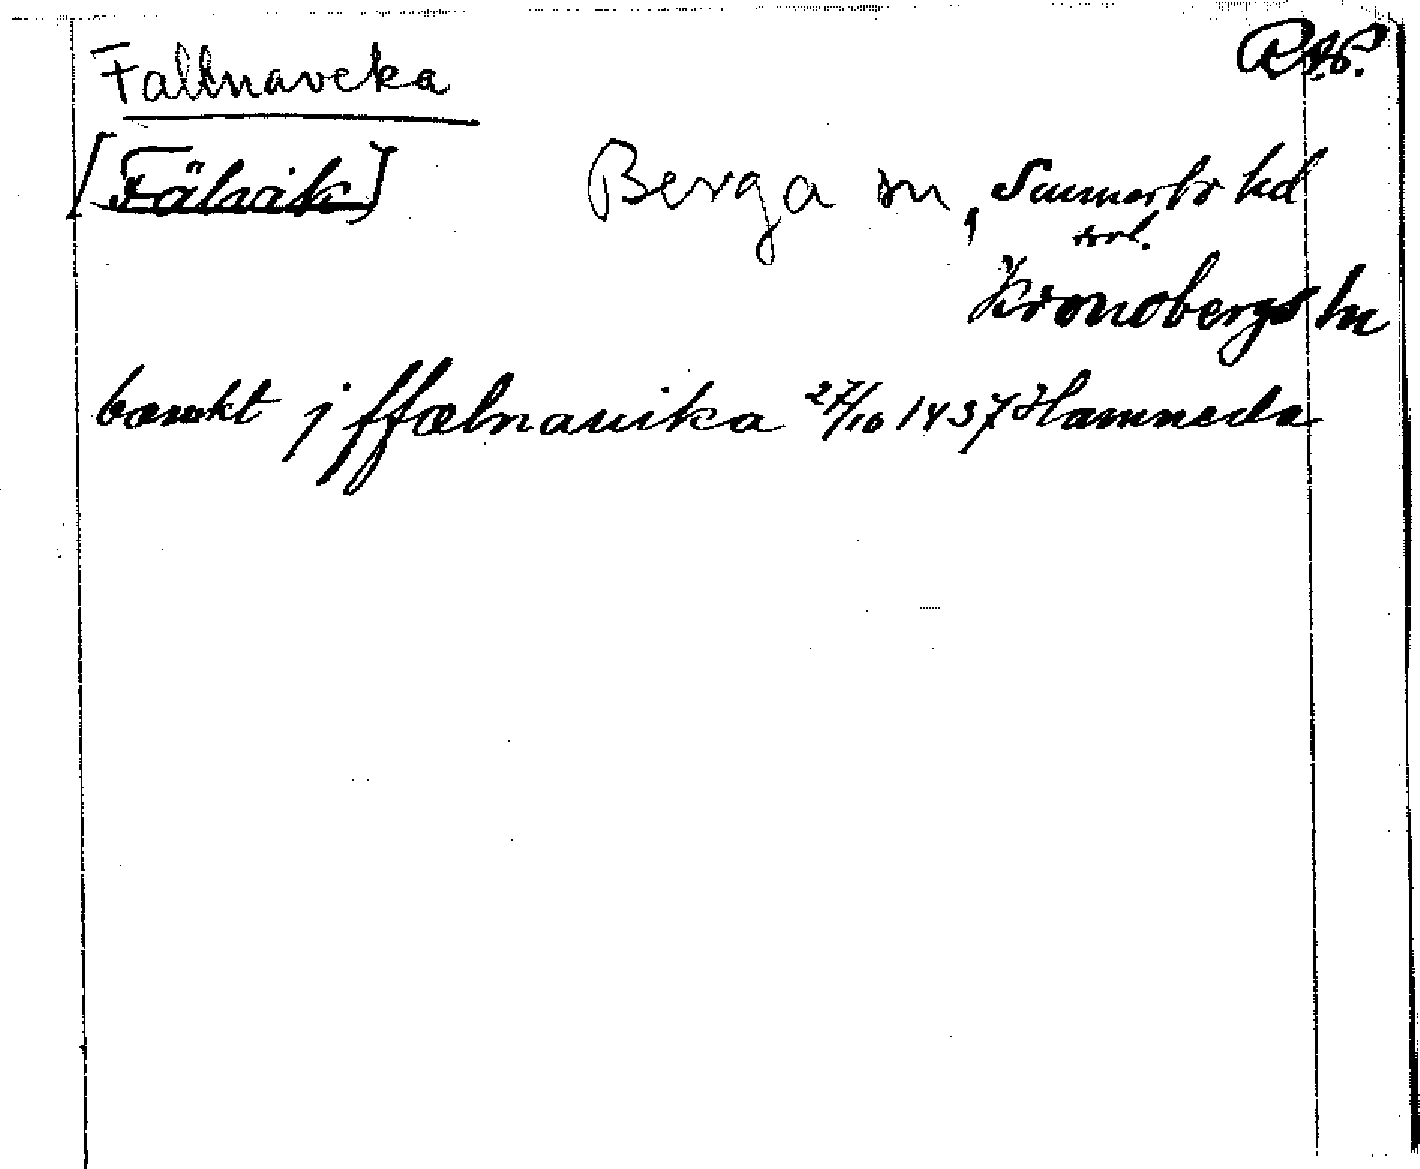 Fallnaveka
RAP.
[Fälvik]
Berga sn, Sunnerbo hd
Kronobergs ln
bænkt j ffælnauika 27/10 1437 Hamneda